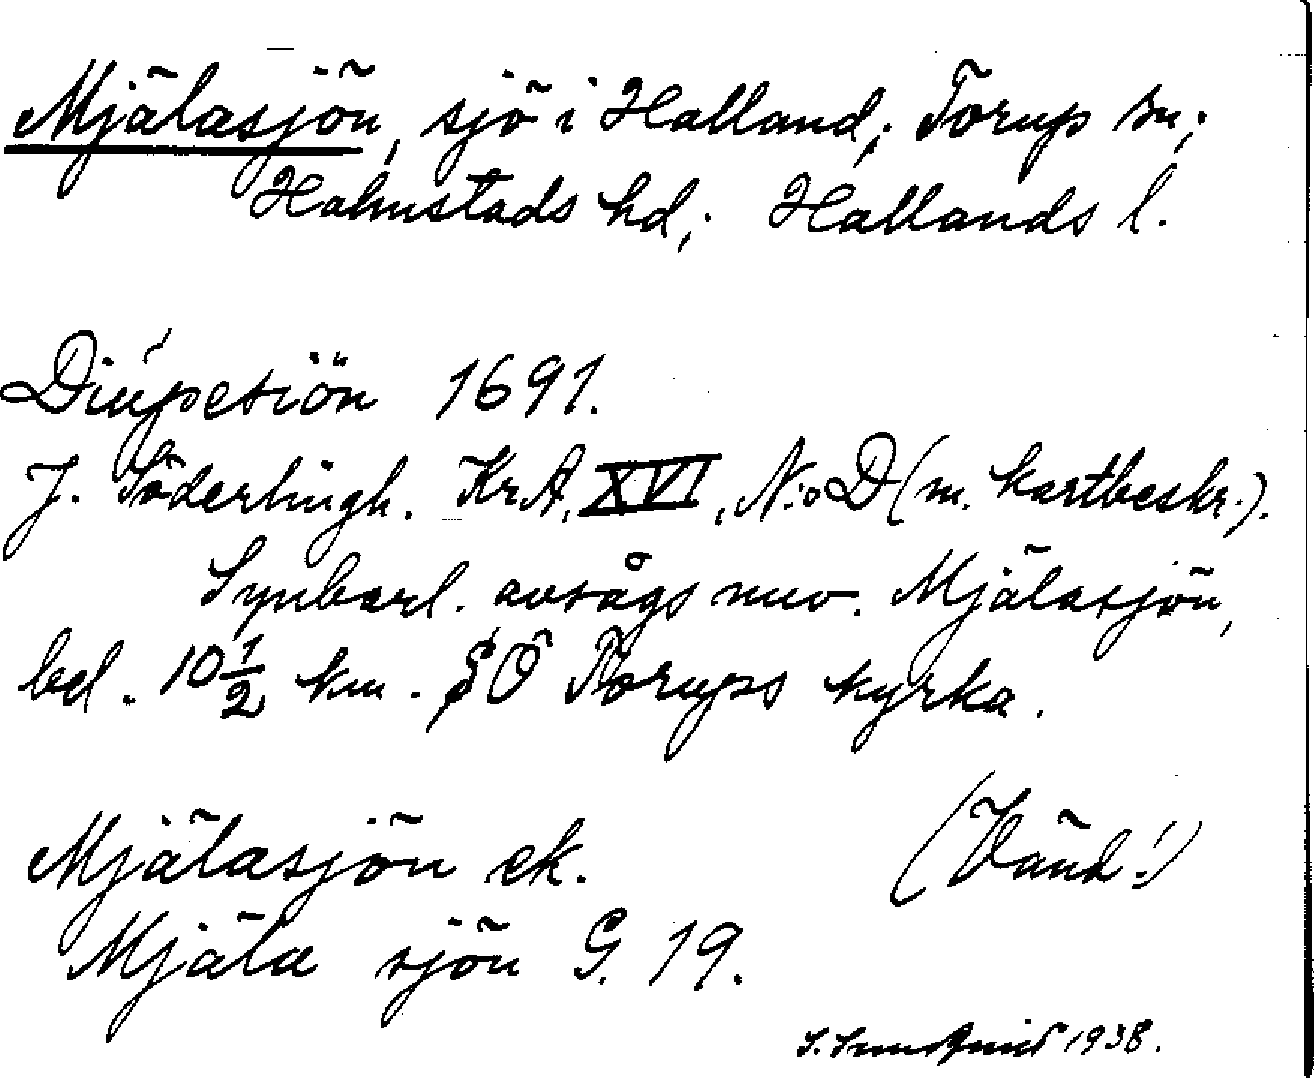 Mjälasjön, sjö i Halland; Torup sn;
Halmstads hd; Hallands l.
Diúpesiön 1691.
J. Söderlingh. KrA, XVI, N:o D (m. kartbeskr.).
Synbarl. avsågs nuv. Mjälasjön,
bel. 10 1/2 km. SÖ Torups kyrka.
Mjälasjön ek. (Vänd!)
Mjäla sjön G. 19.
S. Sundqvist 1938.